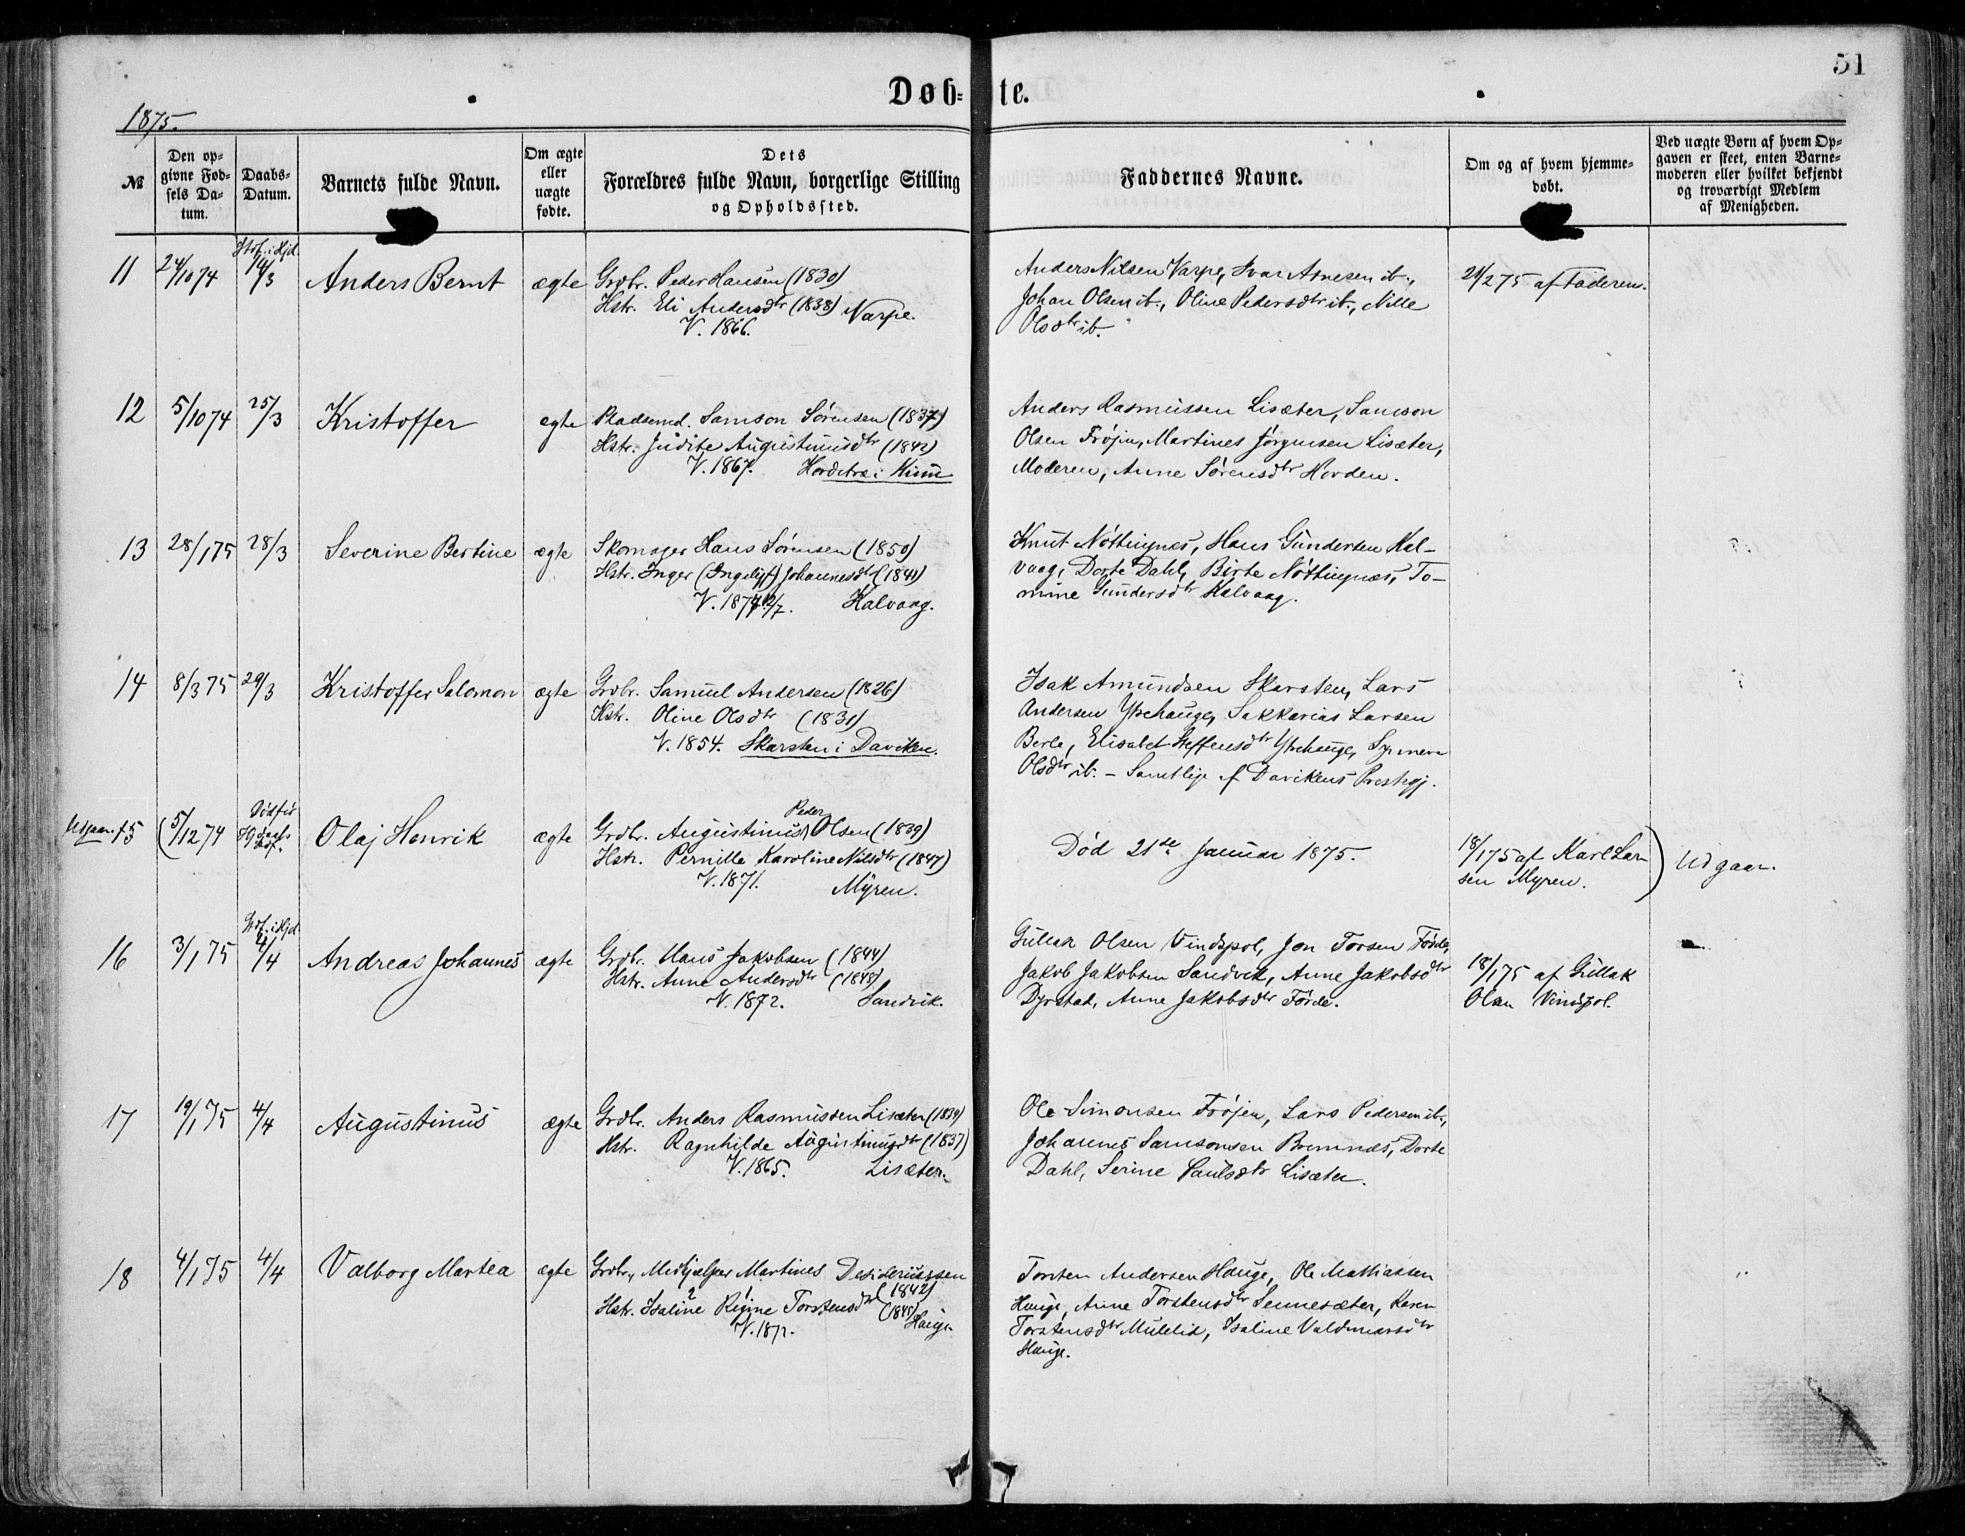 51
Døb= te.
1875.
№
Den op=
givne Fød=
sels Da=
tum.
Daabs=
Datum.
Barnets fulde Navn.
Om ægte
eller
uægte
fødte.
Dets
Forældres fulde Navn, borgerlige Stilling
og Opholdssted.
Faddernes Navne.
Om og af hvem hjemme=
døbt.
Ved uægte Børn af hvem Op=
gaven er skeet, enten Barne=
moderen eller hvilket bekjendt
og troværdigt Medlem
af Menigheden.
11 24/10 74 14/3 Anders Bernt ægte
Grdbr. Peder Hansen (1830)
Hstr. Eli Andersdtr (1838) Varpe.
V. 1866.
Anders Nilsen Varpe, Ivar Arnesen ib.,
Johan Olsen ib., Oline Pedersdtr ib., Nille
Olsdtr ib.
21/2 75 af Faderen.
12 5/10 74 25/3 Kristoffer ægte
Pladsemd. Samson Sørensen (1837)
Hstr. Judite Augustinusdtr (1842)
V. 1867. i Kinn
Anders Rasmussen Lisæter, Samson
Olsen Frøjen, Martines Jørgensen Lisæter,
Moderen, Anne Sørensdtr Hovden.
13 28/1 75 28/3 Severine Bertine ægte
Skomager Hans Sørensen (1850)
Hstr. Inger (Ingelif) Johannesdtr (1841)
V. 1874 Kalvaag.
Knut Nøttingnes, Hans Gundersen Kal-
vaag, Dorte Dahl, Birte Nøttingnæs, To-
mine Gundersdtr Kalvaag.
14 8/3 75 29/3 Kristoffer Salomon ægte
Grdbr. Samuel Andersen (1826)
Hstr. Oline Olsdtr (1831)
V. 1854. Skarsten i Daviken.
Isak Amundsen Skarsten, Lars
Andersen Ytrehauge, Sakkarias Larsen
Berle, Elisabet Steffensdtr Ytrehauge, Synneve
Olsdtr ib. – Samtlige af Davikens Prestegj.
Udgaar. 15 (5/12 74 Død før Olaj Henrik ægte
Peder
Grdbr. Augustinus Olsen (1839)
Hstr. Pernille Karoline Nilsdtr (1847)
V. 1871. Myren.
Død 21de Januar 1875.
18/1 75 af Karl Lar-
sen Myren. ) Udgaar.
16 3/1 75 4/4 Andreas Johannes ægte
Grdbr. Hans Jakobsen (1844)
Hstr. Anne Andersdtr (1848)
V. 1872. Sandvik.
Gullak Olsen Vindspol, Jon Torsen Førde,
Jakob Jakobsen Sandvik, Anne Jakobsdtr
Dyrstad, Anne Jakobsdtr Førde.
18/1 75 af Gullak
Olsen Vindspol.
17 19/1 75 4/4 Augustinus ægte
Grdbr. Anders Rasmussen Lisæter (1839)
Hstr. Ragnhilde Augustinusdtr (1837)
V. 1865. Lisæter.
Ole Simonsen Frøjen, Lars Pedersen ib.,
Johannes Samsonsen Bremnæs, Dorte
Dahl, Serine Paulsdtr Lisæter.
18 4/1 75 4/4 Valborg Martea ægte
Grdbr, Medhjælper Martines Desideriussen
(1842)
Hstr. Isaline Regine Torstensdtr (1848)
V. 1871. Hauge
Torsten Andersen Hauge, Ole Mathiassen
Hauge, Anne Torstensdtr Sennesæter, Karen
Torstensdtr Mulelid, Isaline Valdmarsdtr
Hauge.